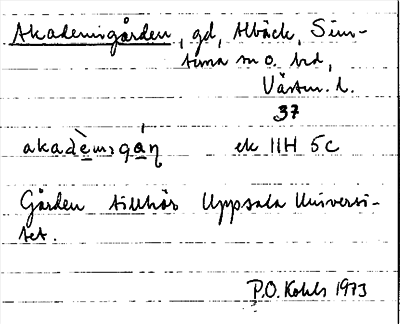 Akademigården, gd, Albäck, Sim-
tuna sn o. hd,
Västm. l.
37
akadèmigán ek 11H 5c
Gården tillhör Uppsala Universi-
tet.
P.O. Kohls 1973